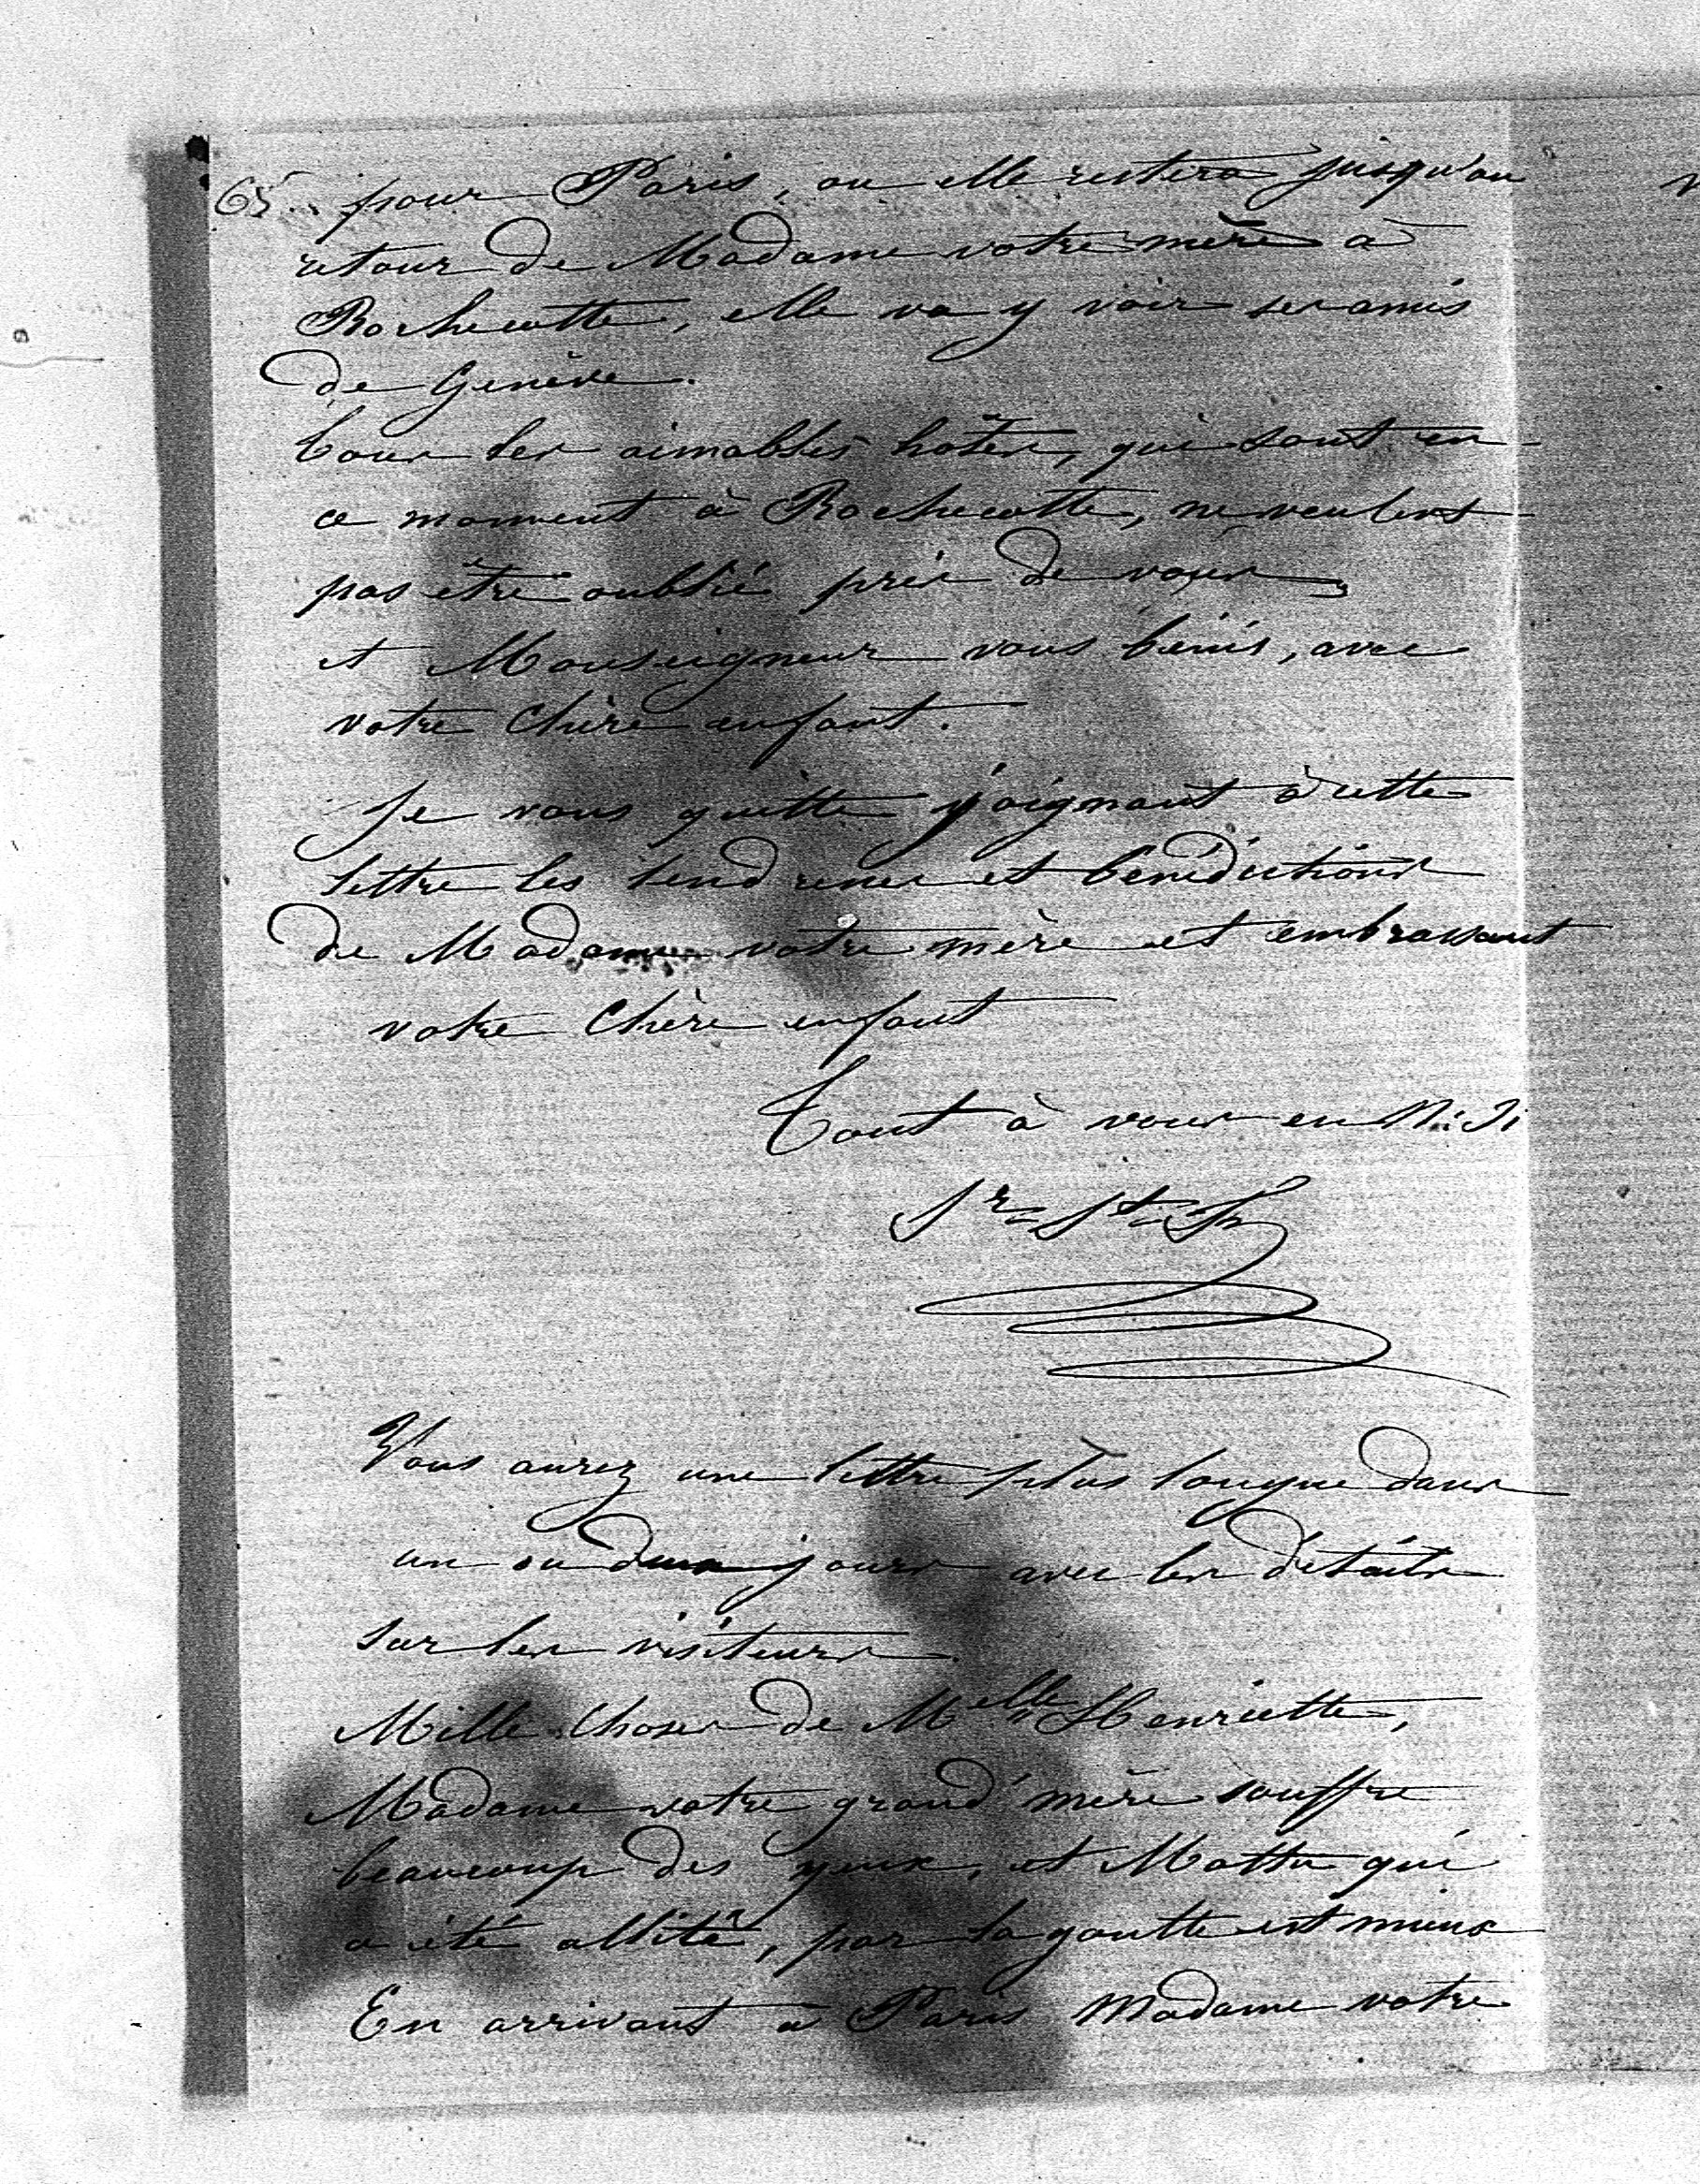 65 pour Paris, ou elle restera jusqu'au
retour de Madame votre mère à
Rochecotte, elle va y voir ses amis
de Genève.
Tous les aimables hôtes, qui sont en
ce moment à Rochecotte, ne veulent
pas être oublié près de vous,
et Monseigneur vous bénis, avec
votre Chère enfant.
Je vous quitte j'oignant à cette
lettre les tendresses et bénédictions
de Madame votre mère et embrassant
votre Chère enfant
Tout à vous en N. S.
Sr St
Vous aurez une lettre plus longue dans
un ou deux jours avec les détails
sur les visiteurs.
Mille Choses de Melle Henriette,
Madame votre grand'mère souffre
beaucoup des yeux, et Motta qui
a été allité, par la goutte est mieux
En arrivant à Paris Madame votre